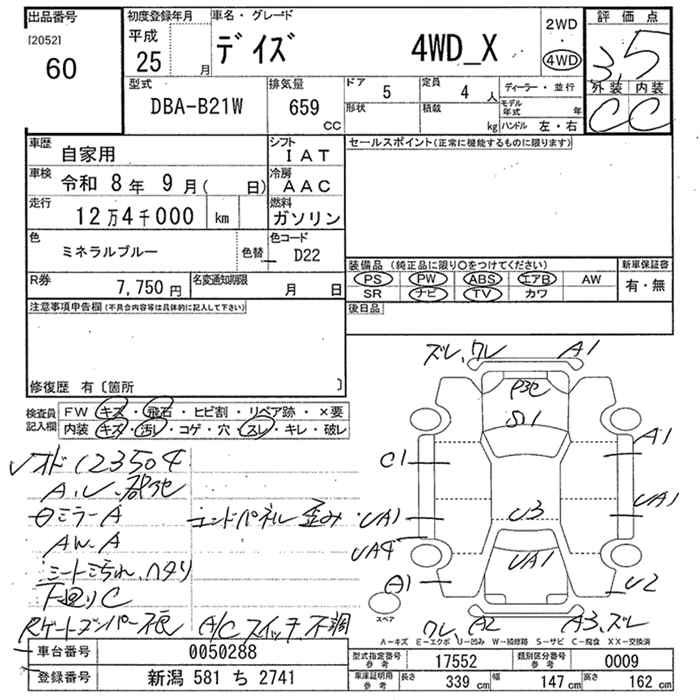 出品番号
[2052]
60
初度登録年月
平成
25 月
車名・グレード
デイズ 4WD_X
2WD
4WD
評価点
3.5
外装 内装
C C
型式
DBA-B21W
排気量
659 CC
ドア 5
定員 4 人
形状
積載 kg
ディーラー・並行
モデル年式 年
ハンドル 左・右
車歴 自家用
車検 令和 8年 9月( 日)
走行 12万4千000 km
シフト
IAT
冷房
AAC
燃料
ガソリン
色 ミネラルブルー
色替
色コード
D22
R券 7,750 円
名変通知期限 月 日
セールスポイント(正常に機能するものに限ります)
装備品 (純正品に限り○をつけてください)
PS PW ABS エアB AW
SR ナビ TV カワ
新車保証書
有・無
後日品
注意事項申告欄(不具合内容等は具体的に記入して下さい)
修復歴 有〔箇所 〕
検査員記入欄
FW キズ・飛石・ヒビ割・リペア跡・×要
内装 キズ・汚レ・コゲ・穴・スレ・キレ・破レ
オド123504
Aミラー A
AW.A
シート汚れ、ヘタリ
下廻りC
エンドパネル 歪み
A/Cスイッチ不調
ズレ,ワレ A1
S1
C1
A1
UA1
UA1
U3
UA4
UA1
A1
U2
ワレ A2 A3,ズレ
スペア
A-キズ E-エクボ U-凹み W-補修跡 S-サビ C-腐食 XX-交換済
車台番号 0050288
登録番号 新潟 581 ち 2741
型式指定番号 参考 17552
類別区分番号 参考 0009
車庫証明用 参考
長さ 339 cm
幅 147 cm
高さ 162 cm